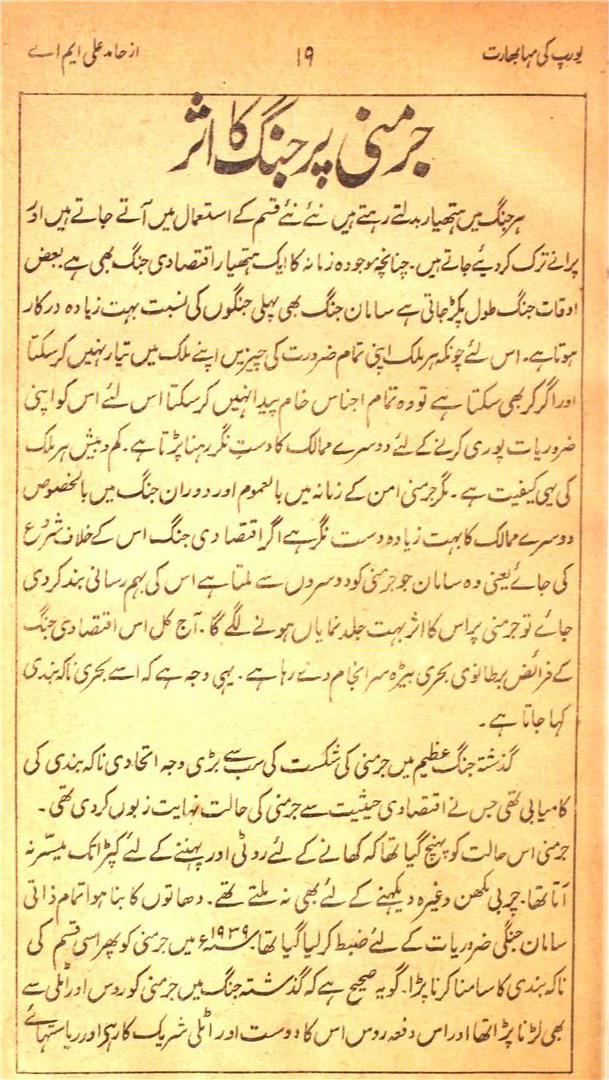 یورپ کی مہابھارت ۱۹ از حامد علی ایم اے
جرمنی پر جنگ کا اثر
ہر جنگ میں ہتھیار بدلتے رہتے ہیں نئے نئے قسم کے استعمال میں آتے جاتے ہیں اور
پرانے ترک کر دیئے جاتے ہیں۔ چنانچہ موجودہ زمانہ کا ایک ہتھیار اقتصادی جنگ بھی ہے بعض
اوقات جنگ طول پکڑ جاتی ہے سامان جنگ بھی پہلی جنگوں کی نسبت بہت زیادہ درکار
ہوتا ہے۔ اس لئے چونکہ ہر ملک اپنی تمام ضرورت کی چیزیں اپنے ملک میں تیار نہیں کر سکتا
اور اگر کر بھی سکتا ہے تو وہ تمام اجناس خام پیدا نہیں کر سکتا اس لئے اس کو اپنی
ضروریات پوری کرنے کے لئے دوسرے ممالک کا دست نگر رہنا پڑتا ہے۔ کم و بیش ہر ملک
کی یہی کیفیت ہے۔ مگر جرمنی امن کے زمانہ میں بالعموم اور دوران جنگ میں بالخصوص
دوسرے ممالک کا بہت زیادہ دست نگر ہے اگر اقتصادی جنگ اس کے خلاف شروع
کی جائے یعنی وہ سامان جو جرمنی کو دوسروں سے ملتا ہے اس کی بہم رسانی بند کر دی
جائے تو جرمنی پر اس کا اثر بہت جلد نمایاں ہونے لگے گا۔ آج کل اس اقتصادی جنگ
کے فرائض برطانوی بحری بیڑہ سرانجام دے رہا ہے۔ یہی وجہ ہے کہ اسے بحری ناکہ بندی
کہا جاتا ہے۔
گذشتہ جنگ عظیم میں جرمنی کی شکست کی سب سے بڑی وجہ اتحادی ناکہ بندی کی
کامیابی تھی جس نے اقتصادی حیثیت سے جرمنی کی حالت نہایت زبوں کر دی تھی۔
جرمنی اس حالت کو پہنچ گیا تھا کہ کھانے کے لئے روٹی اور پہننے کے لئے کپڑا تک میسر نہ
آتا تھا۔ چربی مکھن وغیرہ دیکھنے کے لئے بھی نہ ملتے تھے۔ دھاتوں کا بنا ہوا تمام ذاتی
سامان جنگی ضروریات کے لئے ضبط کر لیا گیا تھا۔ ۱۹۳۹ء میں جرمنی کو پھر اسی قسم کی
ناکہ بندی کا سامنا کرنا پڑا۔ گو یہ صحیح ہے کہ گذشتہ جنگ میں جرمنی کو روس اور اٹلی سے
بھی لڑنا پڑا تھا اور اس دفعہ روس اس کا دوست اور اٹلی شریک کار ہے اور ریاستہائے